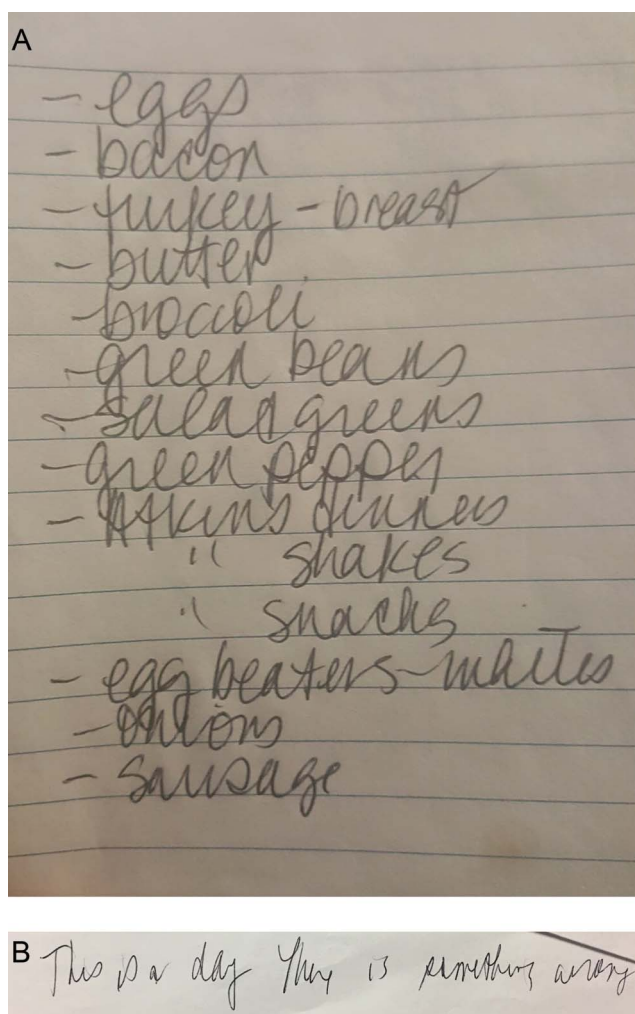 A
- eggs
- bacon
- turkey - breast
- butter
- broccoli
- green beans
- salad greens
- green pepper
- Atkins dinners
" shakes
" snacks
- egg beaters - whites
- onions
- sausage
B
This is a day They is something wrong